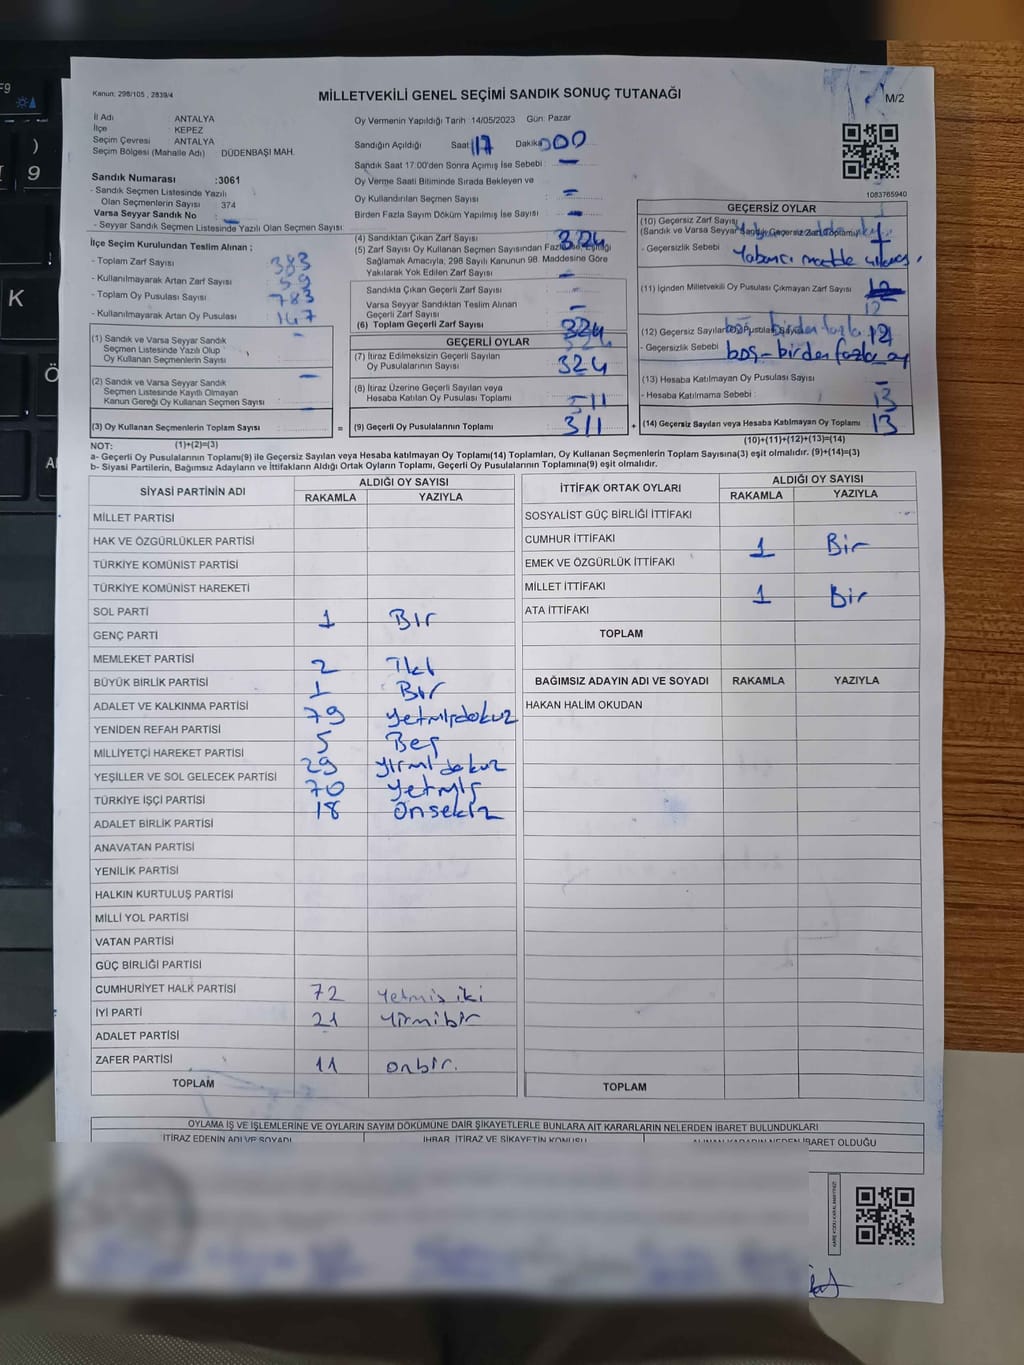 Kanun: 298/105 , 2839/4
MİLLETVEKİLİ GENEL SEÇİMİ SANDIK SONUÇ TUTANAĞI
M/2
İl Adı ANTALYA
İlçe KEPEZ
Seçim Çevresi ANTALYA
Seçim Bölgesi (Mahalle Adı) DÜDENBAŞI MAH.
Sandık Numarası :3061
- Sandık Seçmen Listesinde Yazılı
Olan Seçmenlerin Sayısı 374
Varsa Seyyar Sandık No
- Seyyar Sandık Seçmen Listesinde Yazılı Olan Seçmen Sayısı:
İlçe Seçim Kurulundan Teslim Alınan ;
- Toplam Zarf Sayısı 383
- Kullanılmayarak Artan Zarf Sayısı 59
- Toplam Oy Pusulası Sayısı 783
- Kullanılmayarak Artan Oy Pusulası 147
(1) Sandık ve Varsa Seyyar Sandık
Seçmen Listesinde Yazılı Olup
Oy Kullanan Seçmenlerin Sayısı
(2) Sandık ve Varsa Seyyar Sandık
Seçmen Listesinde Kayıtlı Olmayan
Kanun Gereği Oy Kullanan Seçmen Sayısı
(3) Oy Kullanan Seçmenlerin Toplam Sayısı
Oy Vermenin Yapıldığı Tarih 14/05/2023 Gün: Pazar
Sandığın Açıldığı Saat 17 Dakika 00
Sandık Saat 17:00'den Sonra Açımış İse Sebebi : –
Oy Verme Saati Bitiminde Sırada Bekleyen ve
Oy Kullandırılan Seçmen Sayısı : –
Birden Fazla Sayım Döküm Yapılmış İse Sayısı : –
(4) Sandıktan Çıkan Zarf Sayısı 324
(5) Zarf Sayısı Oy Kullanan Seçmen Sayısından Fazla ise, Eşitliği
Sağlamak Amacıyla; 298 Sayılı Kanunun 98. Maddesine Göre
Yakılarak Yok Edilen Zarf Sayısı –
Sandıkta Çıkan Geçerli Zarf Sayısı :
Varsa Seyyar Sandıktan Teslim Alınan
Geçerli Zarf Sayısı –
(6) Toplam Geçerli Zarf Sayısı 324
GEÇERLİ OYLAR
(7) İtiraz Edilmeksizin Geçerli Sayılan
Oy Pusulasının Sayısı 324
(8) İtiraz Üzerine Geçerli Sayılan veya
Hesaba Katılan Oy Pusulası Toplamı
= (9) Geçerli Oy Pusulalarının Toplamı 311
1083765940
GEÇERSİZ OYLAR
(10) Geçersiz Zarf Sayısı
(Sandık ve Varsa Seyyar Sandığı Geçersiz Zarf Toplamı) 1
- Geçersizlik Sebebi Yabancı madde
(11) İçinden Milletvekili Oy Pusulası Çıkmayan Zarf Sayısı
12
(12) Geçersiz Sayılan Oy Pusulası 12
- Geçersizlik Sebebi boş – birden fazla oy
(13) Hesaba Katılmayan Oy Pusulası Sayısı –
- Hesaba Katılmama Sebebi : 13
+ (14) Geçersiz Sayılan veya Hesaba Katılmayan Oy Toplamı 13
NOT: (1)+(2)=(3) (10)+(11)+(12)+(13)=(14)
a- Geçerli Oy Pusulalarının Toplamı(9) ile Geçersiz Sayılan veya Hesaba katılmayan Oy Toplamı(14) Toplamları, Oy Kullanan Seçmenlerin Toplam Sayısına(3) eşit olmalıdır. (9)+(14)=(3)
b- Siyasi Partilerin, Bağımsız Adayların ve İttifakların Aldığı Ortak Oyların Toplamı, Geçerli Oy Pusulalarının Toplamına(9) eşit olmalıdır.
SİYASİ PARTİNİN ADI ALDIĞI OY SAYISI
RAKAMLA YAZIYLA
MİLLET PARTİSİ
HAK VE ÖZGÜRLÜKLER PARTİSİ
TÜRKİYE KOMÜNİST PARTİSİ
TÜRKİYE KOMÜNİST HAREKETİ
SOL PARTİ 1 Bir
GENÇ PARTİ
MEMLEKET PARTİSİ 2 İki
BÜYÜK BİRLİK PARTİSİ 1 Bir
ADALET VE KALKINMA PARTİSİ 79 yetmişdokuz
YENİDEN REFAH PARTİSİ 5 Beş
MİLLİYETÇİ HAREKET PARTİSİ 29 yirmi dokuz
YEŞİLLER VE SOL GELECEK PARTİSİ 70 yetmiş
TÜRKİYE İŞÇİ PARTİSİ 18 onsekiz
ADALET BİRLİK PARTİSİ
ANAVATAN PARTİSİ
YENİLİK PARTİSİ
HALKIN KURTULUŞ PARTİSİ
MİLLİ YOL PARTİSİ
VATAN PARTİSİ
GÜÇ BİRLİĞİ PARTİSİ
CUMHURİYET HALK PARTİSİ 72 yetmiş iki
İYİ PARTİ 21 yirmibir
ADALET PARTİSİ
ZAFER PARTİSİ 11 onbir.
TOPLAM
İTTİFAK ORTAK OYLARI ALDIĞI OY SAYISI
RAKAMLA YAZIYLA
SOSYALİST GÜÇ BİRLİĞİ İTTİFAKI
CUMHUR İTTİFAKI 1 Bir
EMEK VE ÖZGÜRLÜK İTTİFAKI
MİLLET İTTİFAKI 1 Bir
ATA İTTİFAKI
TOPLAM
BAĞIMSIZ ADAYIN ADI VE SOYADI RAKAMLA YAZIYLA
HAKAN HALİM OKUDAN
TOPLAM
OYLAMA İŞ VE İŞLEMLERİNE VE OYLARIN SAYIM DÖKÜMÜNE DAİR ŞİKAYETLERLE BUNLARA AİT KARARLARIN NELERDEN İBARET BULUNDUKLARI
İTİRAZ EDENİN ADI VE SOYADI İHBAR, İTİRAZ VE ŞİKAYETİN KONUSU ALINAN KARARIN NEDEN İBARET OLDUĞU